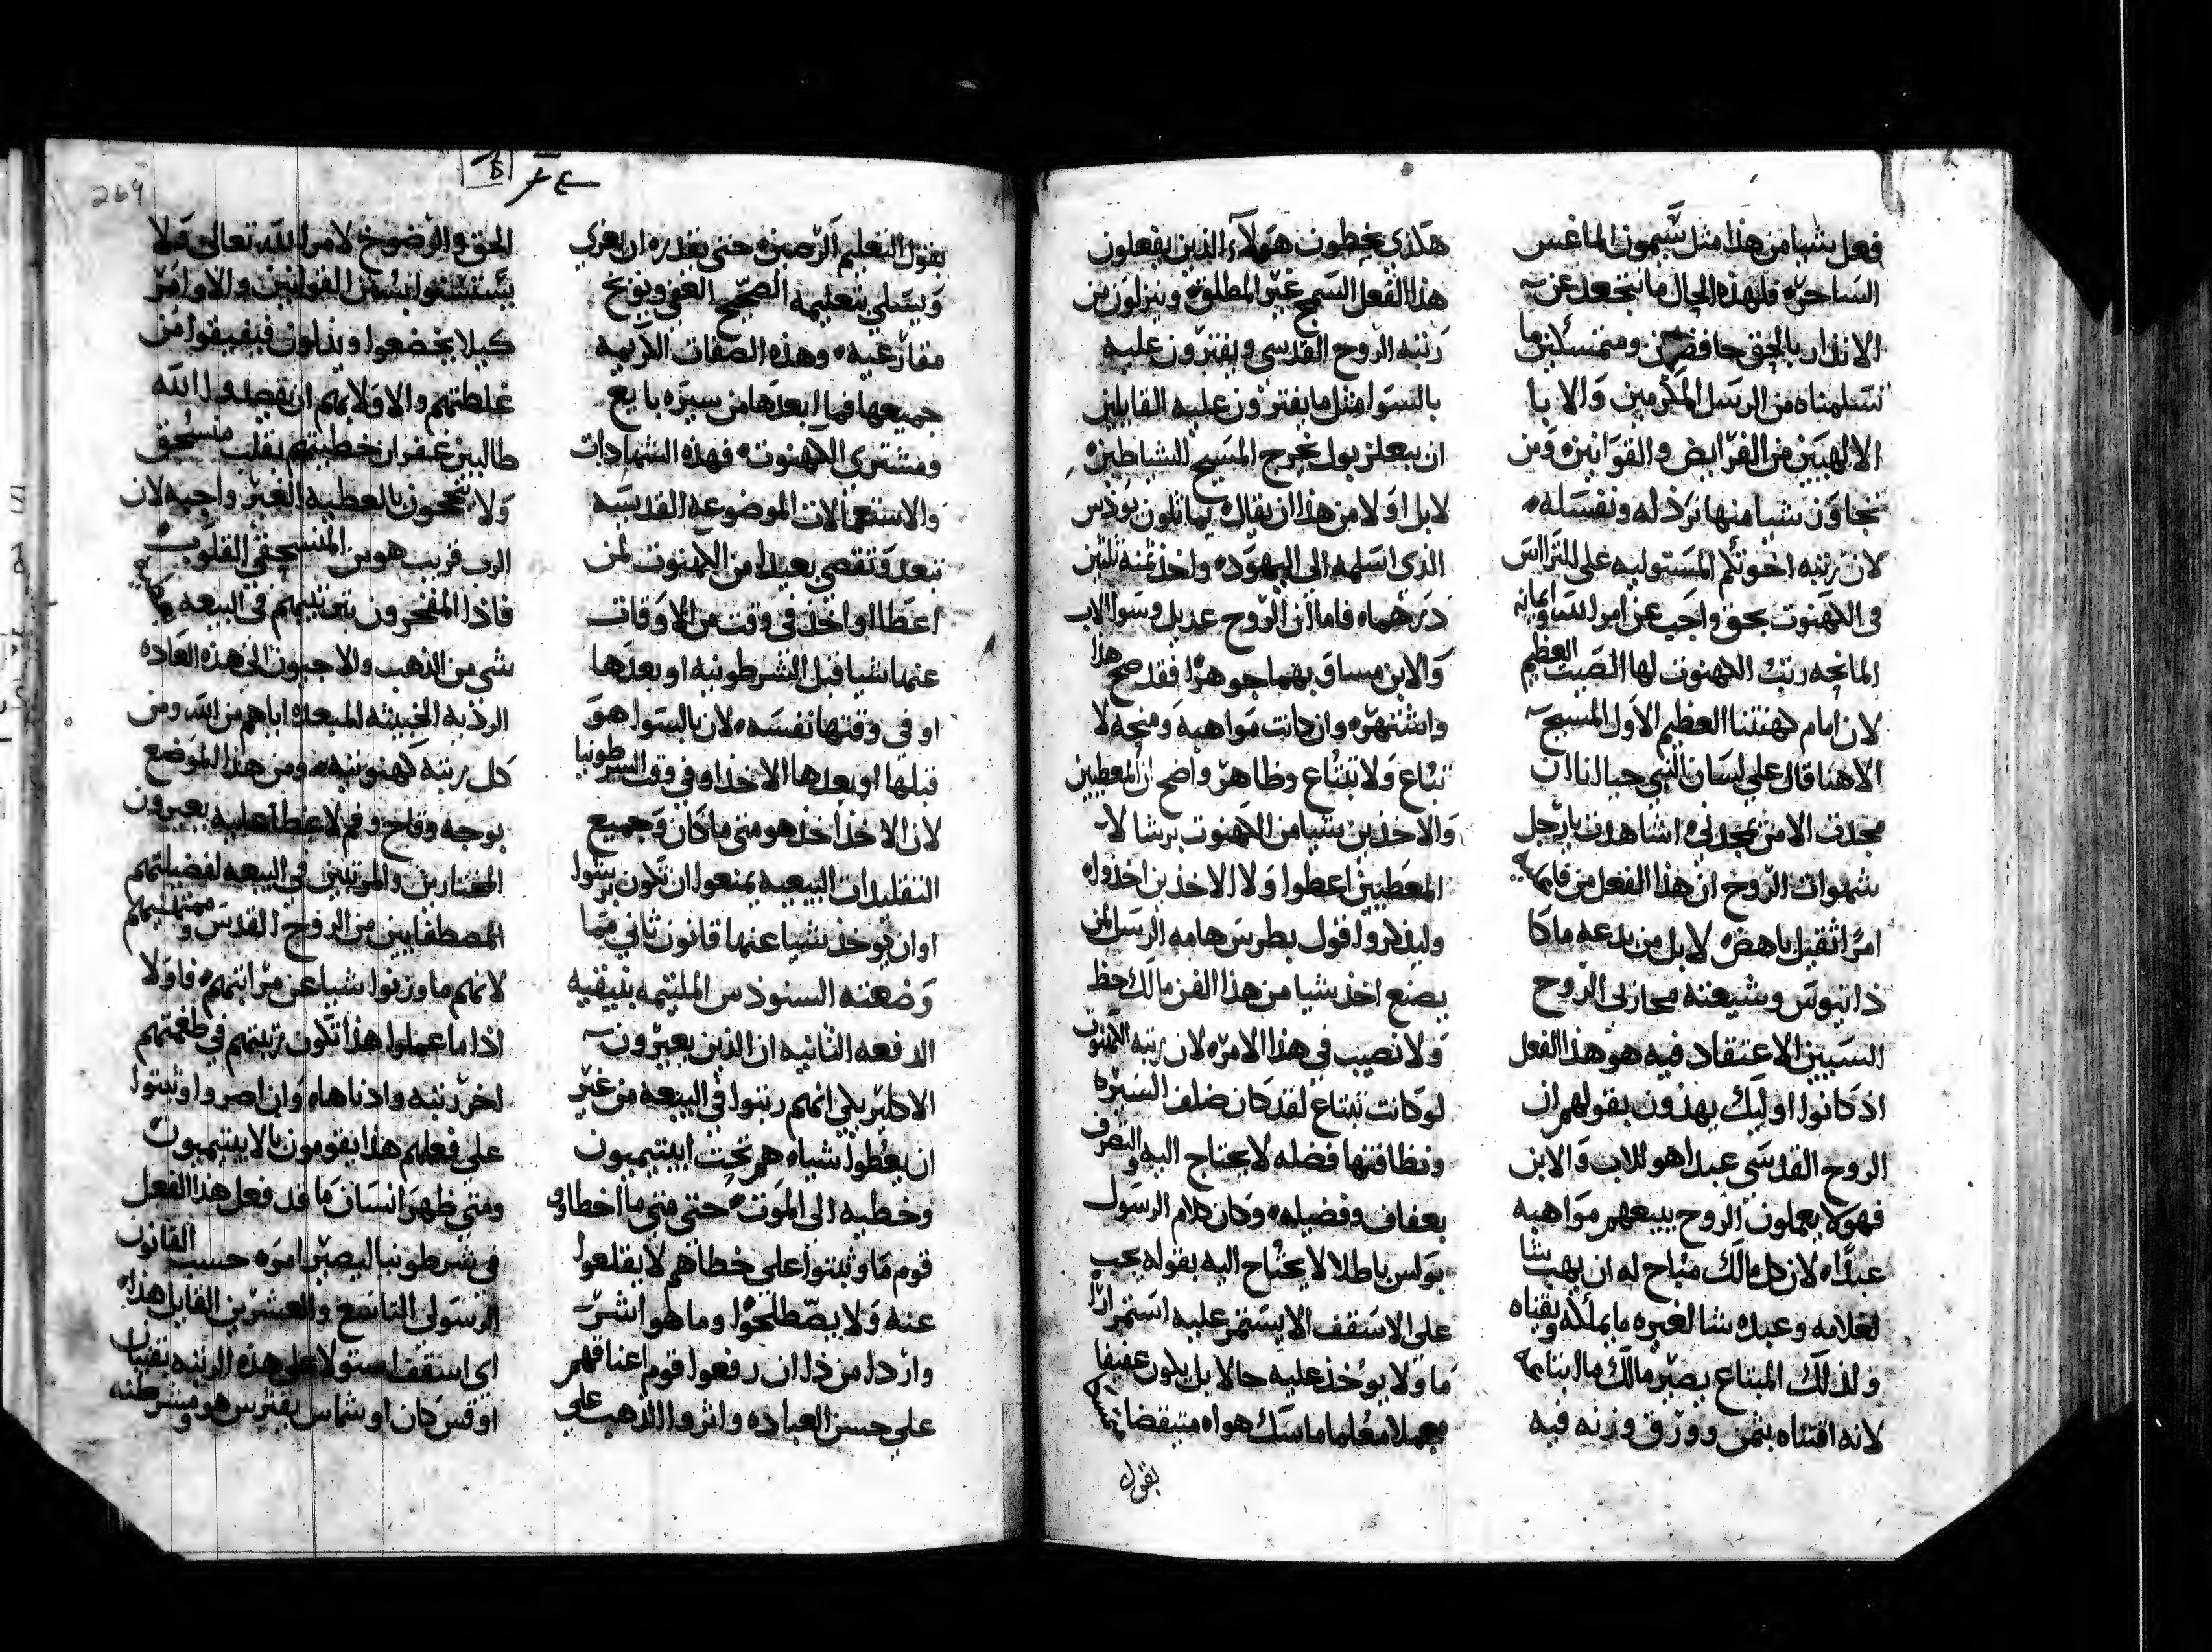 فعل شيا من هذا مثل شيمون الماغس
الساحره فلهذه الحال ما نبتعد عن
الانذار بالحق حافضين ومتمسكين ما
تسلمناه من الرسل المكرمين والابا
الالهيين من الفرايض والقوانين ومن
تجاوز شيا منها نرذله ونفسله
لان رتبه اخوتكم المستوليه على التراس
في الكهنوت بحق واجب عن امر الله واعانه
المانحه رتبت الكهنوت لها الصيت العظيم
لان امام كهنتنا العظيم الاول المسيح
الاهنا قال على لسان النبي حبا لنا ان
مجدت الامن يمجدني اشاهدت يا رجل
شهوات الروح ان هذا الفعل من فايهه
امرا ثقيل باهض لا بل من بدعه ماكا
ذانيوس وشيعته محاربى الروح
السيين الاعتقاد فيه هو هذا الفعل
اذ كانوا اوليك يهذون بقولهم ان
الروح القدسي عبدا هو للاب والابن
فهولا يعملون الروح ببيعهم مواهبه
عبدا لان كل مالك مباح له ان يهب شا
لغلامه وعبده شا لغيره ما يملكه ويقناه
ولذلك المبتاع يصير مالك ما ابتاعه
لانه اقتناه بثمن وورق وزنه فيه
هكذى يخطون هولاء الذين يفعلون
هذا الفعل السمج غير المطلوق وينزلون من
رتبه الروح القدسي ويفترون عليه
بالسوا مثل ما يفترون عليه القايلين
ان ببعلزبول يخرج المسيح الشياطين
لا بل اولا من هذا ان يقال يماثلون يوذس
الذى اسلمه الى اليهود واخذ ثمنه ثلثين
درهما فاما ان الروح عديل وسوا الاب
والابن مساق بهما جوهرا فقد صح هذا
واشتهره وان كانت مواهبه ومنحه لا
تباع ولا تبتاع وظاهر واضح ان المعطيين
والاخذين شيا من الكهنوت برشا لا
المعطيين اعطوا ولا الاخذين اخذوا
وليذكروا قول بطرس هامه الرسل لمن
يصنع اخذ شيا من هذا الفن مالك حظ
ولا نصيب في هذا الامر لان رتبه الكهنوت
لو كانت تبتاع لقد كان ضلف السيره
ونظافتها فضله لا يحتاج اليه والتصرف
بعفاف وفضيله وكان كلام الرسول
بولس باطلا لا يحتاج اليه بقوله يجب
على الاسقف الا يستمر عليه استمرارا
ما ولا يوخذ عليه حالا بل يكون عفيفا
مجملا معلما ماسك هواه متيقضا
بقول
بقول التعليم الرصين حتى يقدر ان يعزي
ويسلي بتعليمه الصحيح الغفى ويوبخ
مقارعيه وهذه الصفات الكريمه
جميعها فما ابعدها من سيرة بايع
ومشترى الكهنوت فهذه الشهادات
والاستعمالات الموضوعه القدسيه
تبعد وتقصى بعيدا من الكهنوت لمن
اعطا او اخذ في وقت من الاوقات
عنها شيا قبل الشرطونيه او بعدها
او في وقتها نفسه لان بالسوا هو
قبلها او بعدها الاخذ او في وقت الشرطونيا
لان الاخذ اخذ هو متى ما كان وجميع
التقليدات البيعيه يمنعوا ان تكون برشوا
او ان يوخذ شيا عنها قانون ثاني مما
وضعته السنودس الملتيمه بنيقيه
الدفعه الثانيه ان الذين يعيرون
الاكليريكي انهم رتبوا في البيعه من غير
ان يعطوا شيا هم تحت ابيتيميون
وخطيه الى الموت حتى متى ما اخطا
قوم ما وثبتوا على خطاهم لا يقلعوا
عنه ولا يصطلحوا وما هو اشر
واردا من ذا ان رفعوا قوم اعناقهم
على حسن العباده واثروا الذهب على
الحق والرضوخ لامر الله تعالى ولا
يستسنوا بسنن القوانين والاوامر
كيلا يخضعوا ويذلون فيفيقوا من
غلطتهم والاولا بهم ان يفصلوا الله
طالبين غفران خطيتهم بقلب منسحق
ولا يتبجحون بالعطيه الغير واجبه لان
الرب قريب هو من المنسحقي القلوب
فاذا المفتخرون بترتيبهم في البيعه
شي من الذهب والاجبون الى هذه العاده
الرذيه الخبيثه المبعده اياهم من الله ومن
كل رتبه كهنوتيه ومن هذا الموضع
بوجه وقاح وفم لا غطا عليه يعيرون
المختارين والمرتبين في البيعه لفضيلتهم
المصطفايين من الروح القدس
لانهم ما وزنوا شيا عن مراتبهم فاولا
اذا ما عملوا هذا تكون رتبتهم في طغمتهم
اخر رتبه وادناها وان اصروا وثبتوا
على فعلهم هذا يقومون بالابيتيميون
ومتى ظهر انسان ما قد فعل هذا الفعل
في شرطونيا ليصير امره حسب القانون
الرسولي التاسع والعشرين القايل هذا
اى اسقف استولا على هذه الرتبه بقنيان
او قس كان او شماس يفترس هو ومشرطنه
264